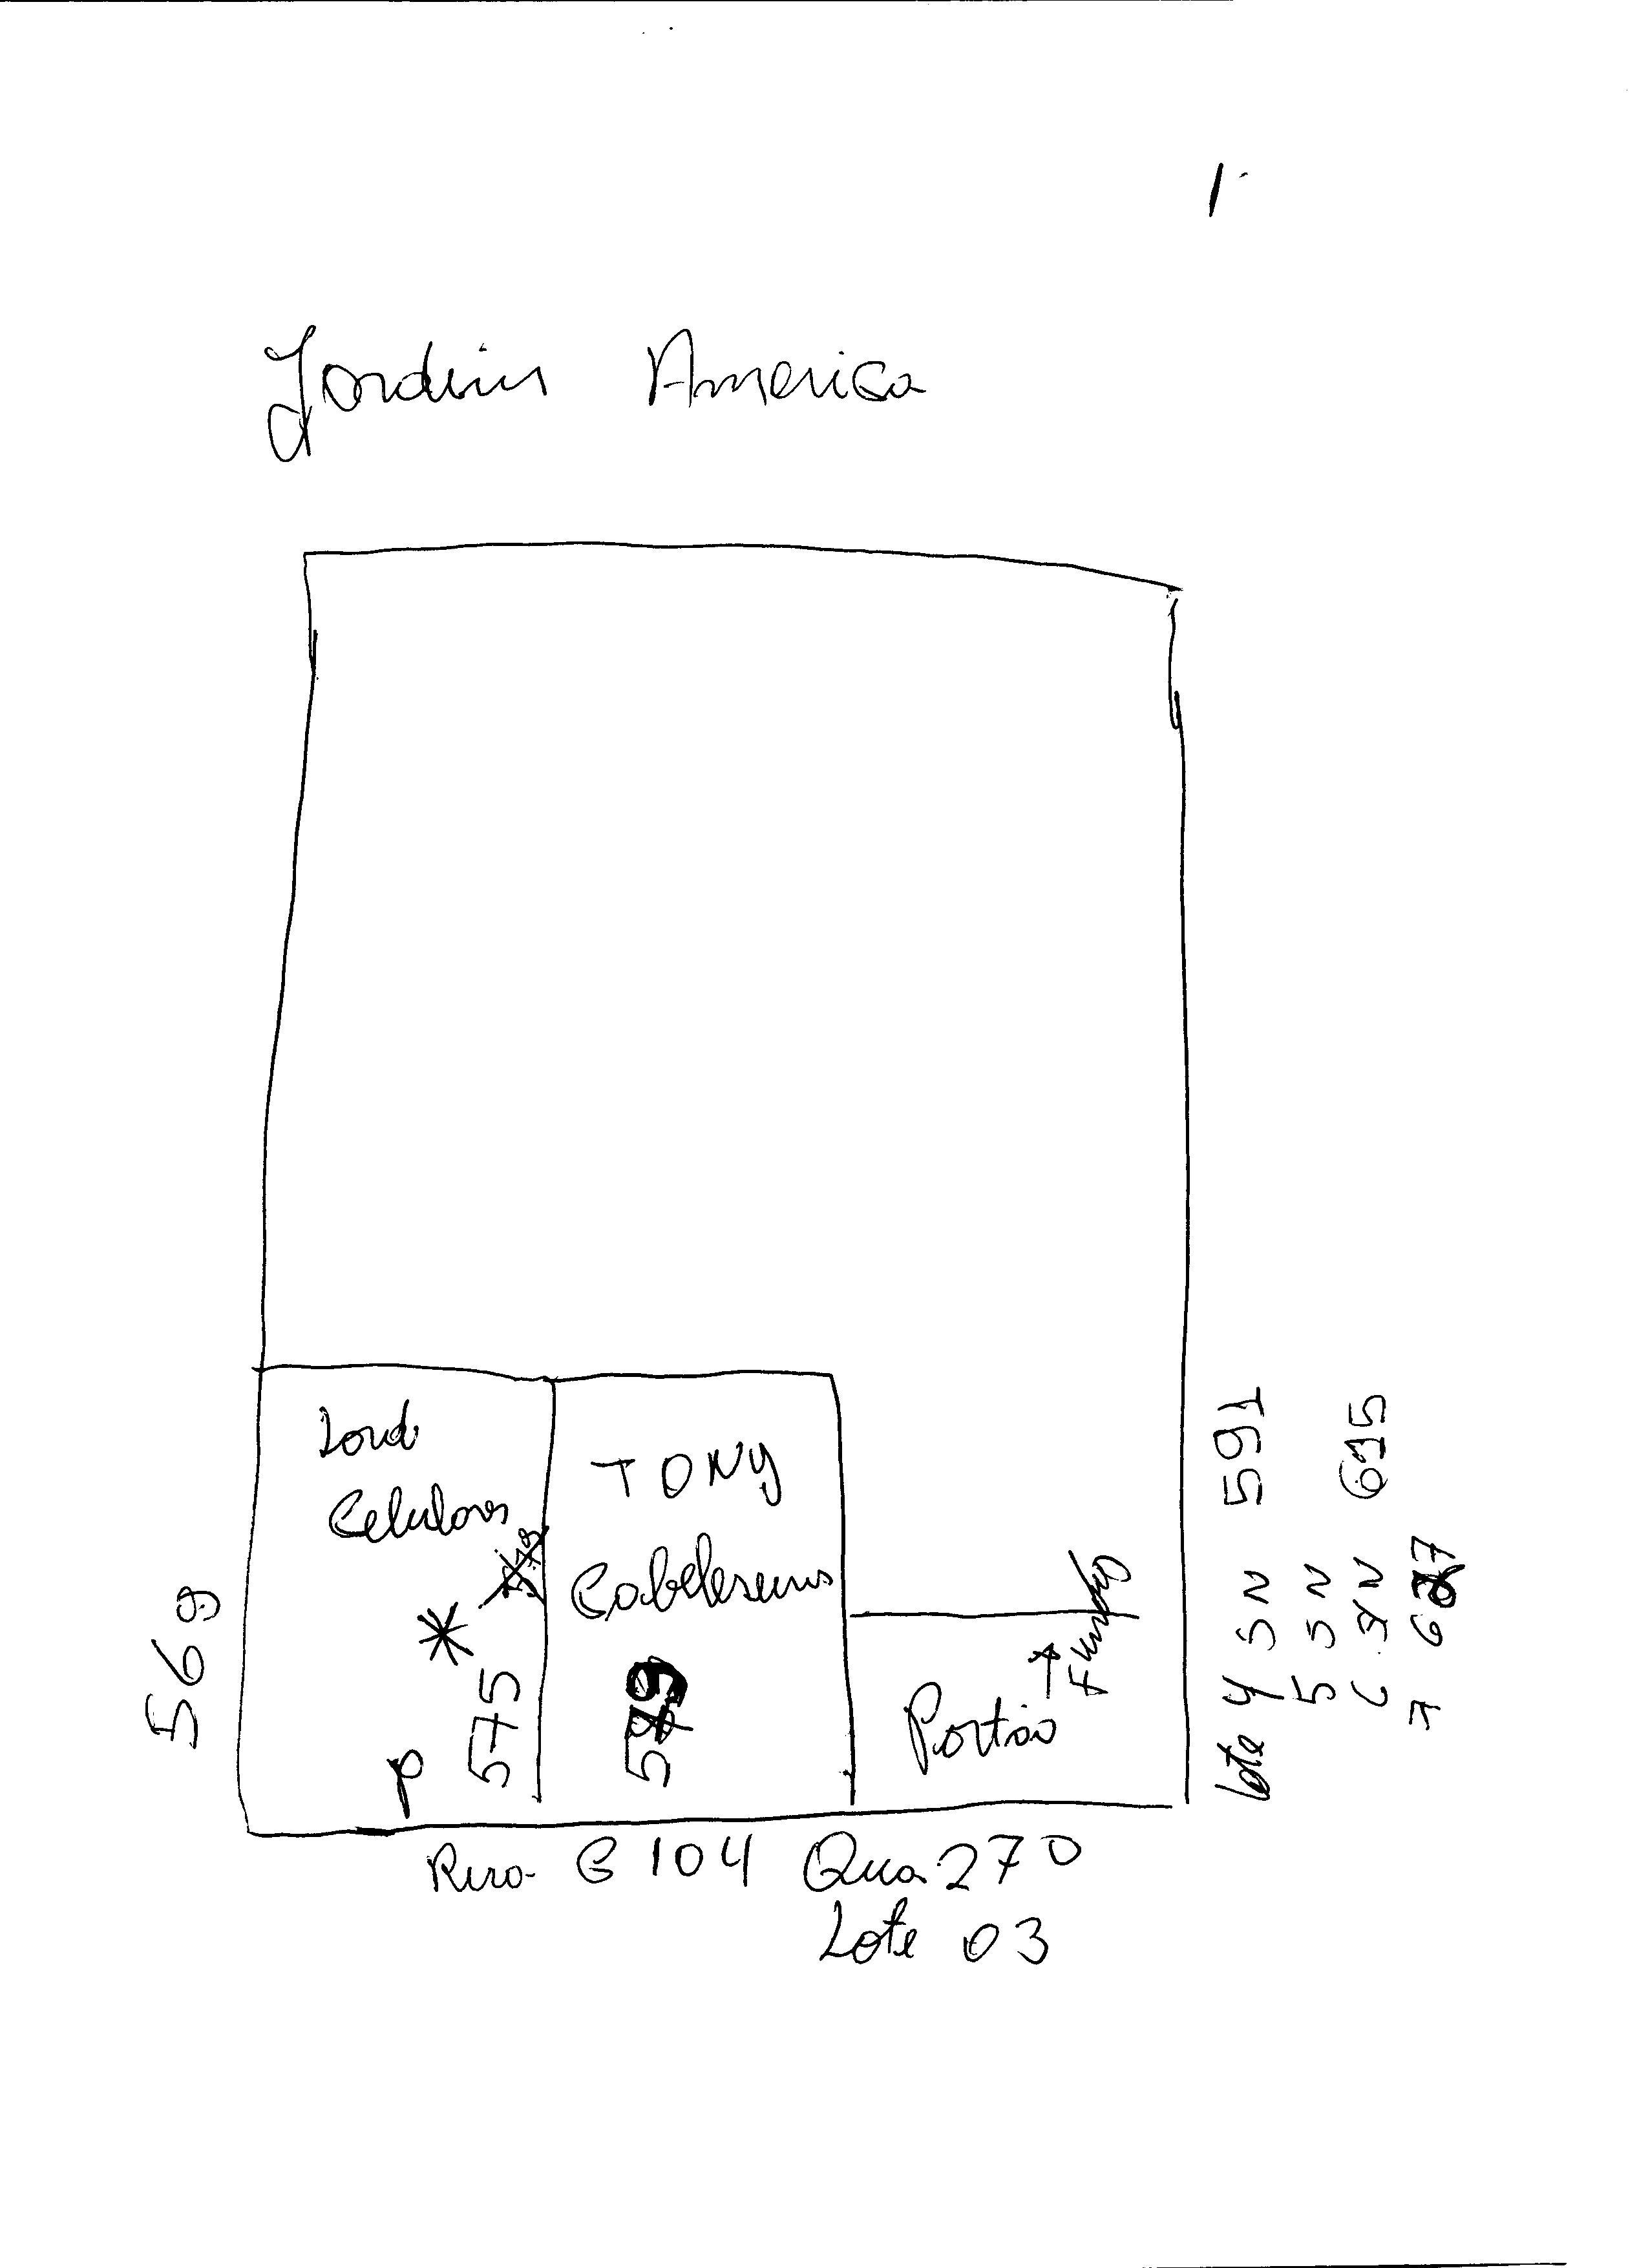 Jardim America
Lord
Celulares
TONY
Cabelereiros
569
P
575
579
Portão
Fundos
Lote 4 SN 591
5 SN
6 SN 615
7 627
Rua C 104 Qua 270
Lote 03